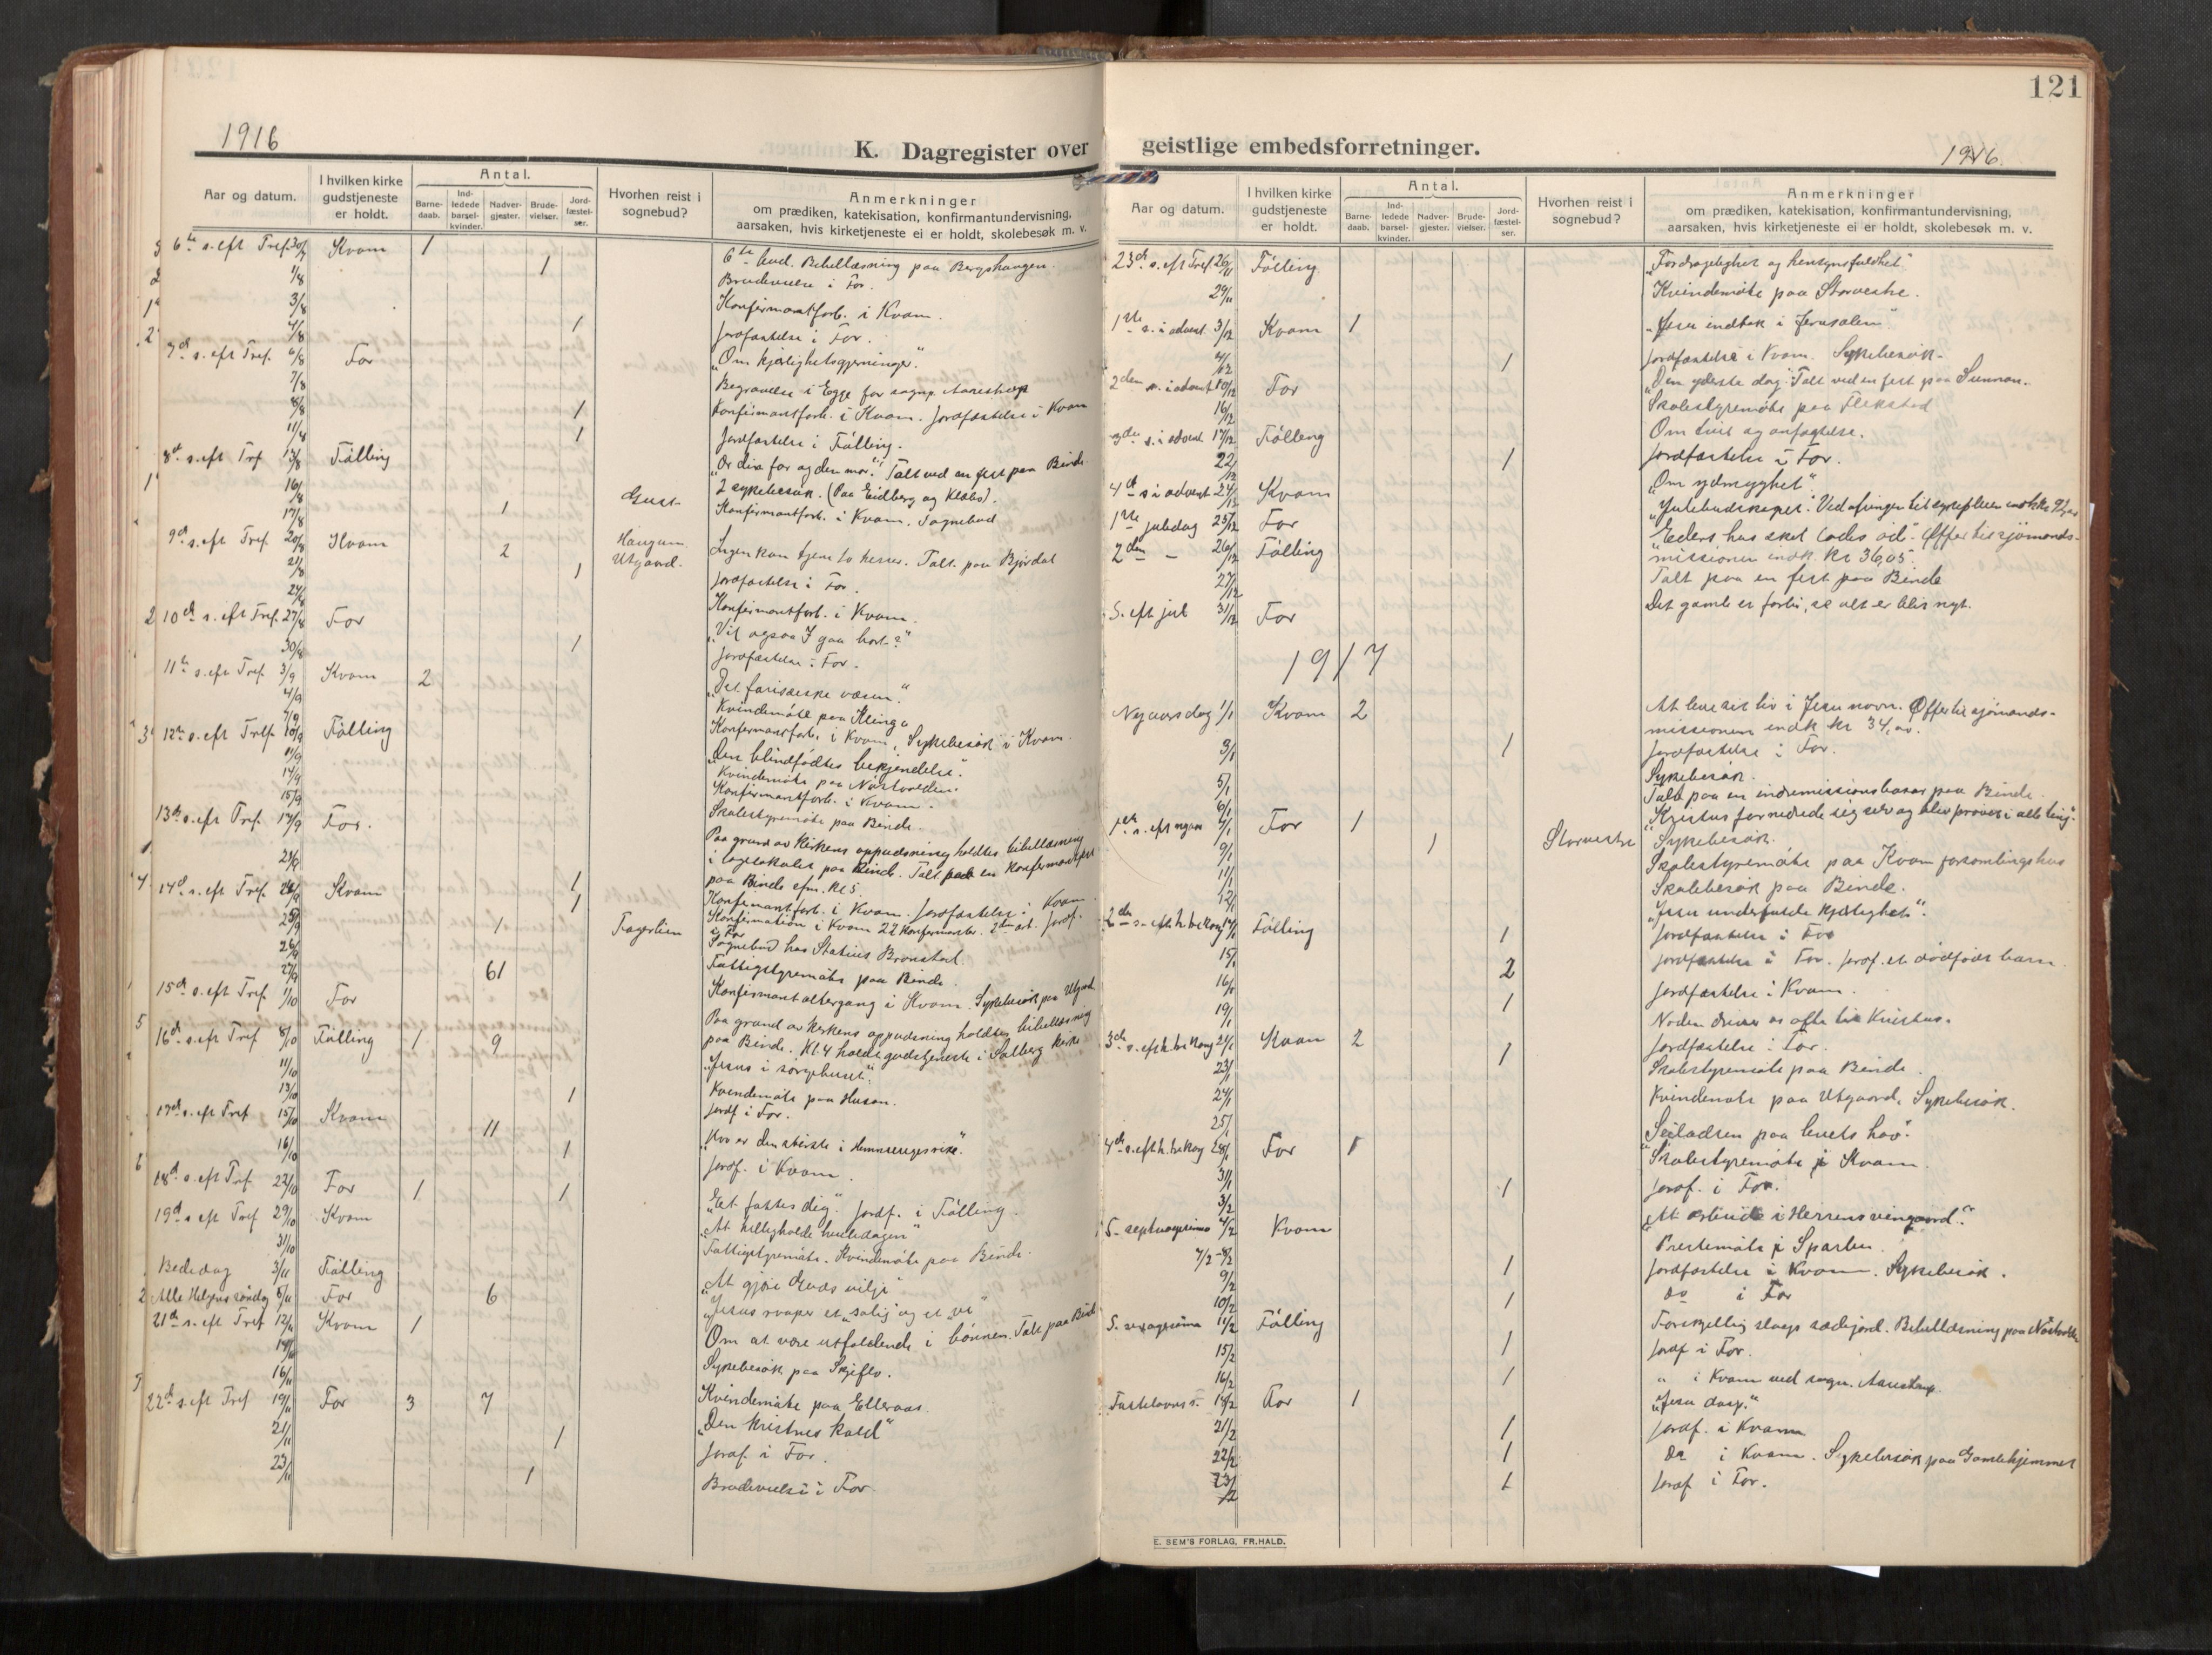 1916
K. Dagregister over
Aar og datum.
I hvilken kirke gudstjeneste er holdt.
Antal.
Barne-daab.
Ind-ledede barsel-kvinder.
Nadver-gjester.
Brude-vielser.
Jord-fæstel-ser.
Hvorhen reist i sognebud?
Anmerkninger
om prædiken, katekisation, konfirmantundervisning,
aarsaken, hvis kirketjeneste ei er holdt, skolebesøk m. v.
6te s. eft Tref. 30/7 Kvam 1 6te bud. Bibellæsning paa Bergshaugen.
1/8 1 Brudevielse i For.
3/8 Konfirmantforb. i Kvam.
4/8 1 Jordfæstelse i For.
7de s. eft Tref. 6/8 For „Om kjærlighetsgjerninger".
7/8 Begravelse i Egge for sognp. Aarestrup
8/8 1 Konfirmantforb. i Kvam. Jordfæstelse i Kvam
11/8 1 Jordfæstelse i Følling.
8de s. eft Tref 13/8 Følling „Ær din far og den mor". Talt ved en fest paa Binde.
16/8 2 sykebesøk. (Paa Eidberg og Klæbo).
17/8 1 Konfirmantforb. i Kvam. Sognebud
9de s. eft Tref. 20/8 Kvam 2 Haugum Utgaard. Ingen kan tjene to herrer. Talt paa Bjørdal
21/8 1 Jordfæstelse i For.
24/8 Konfirmantforb. i Kvam.
10de s. eft Tref. 27/8 For „Vil ogsaa I gaa bort?"
30/8 1 Jordfæstelse i For.
11te s. eft Tref. 3/9 Kvam 2 „Det fariseiske væsen"
4/9 Kvindemøte paa Klinga
7/9 Konfirmantforb. i Kvam, Sykebesøk i Kvam.
12te s. eft Tref. 10/9 Følling „Den blindfødtes bekjendelse".
11/9 Kvindemøte paa Nøstvolden.
14/9 Konfirmantforb. i Kvam.
15/9 Skolestyremøte paa Binde.
13de s. eft Tref. 17/9 For. Paa grund av kirkens oppudsning holdtes bibellæsning
i lagslokalet paa Binde. Talt paa en konfirmantfest
paa Binde efm. kl 5.
21/9 1 Konfirmantforb. i Kvam. Jordfæstelse i Kvam.
14de s. eft Tref. 24/9 Kvam 1 Konfirmation i Kvam 22 konfirmanter. Jordf.
i For
25/9 1 Fagerlien Sognebud hos Statius Brønstad.
26/9 Fattigstyremøte paa Binde.
27/9 61 Konfirmantaltergang i Kvam. Sykebesøk paa Utgaard.
15de s. eft Tref. 1/10 For Paa grund av kirkens oppudsning holdtes bibellæsning
paa Binde. Kl. 4 holdt gudstjeneste i Salberg kirke
16de s. eft Tref 8/10 Følling 1 9 „Jesus i sørgehuset".
11/10 Kvindemøte paa Husan.
13/10 1 Jordf i For.
17de s. eft Tref 15/10 Kvam 11 „Hvo er den største i Himmeriges rike".
16/10 1 Jordf. i Kvam.
18de s. eft Tref 22/10 For 1 1 „Et fattes dig". Jordf. i Følling.
19de s eft Tref 29/10 Kvam „At helligholde hviledagen"
31/10 Fattigstyremøte. Kvindemøte paa Binde.
Bededag 3/11 Følling „At gjøre Guds vilje"
Alle Helgens søndag 5/11 For 6 „Jesus roaper et „salig" og et „ve"
21de s. eft Tref 12/11 Kvam 1 Om at være utholdende i bønnen. Talt paa Binde
14/11 Sykebesøk paa Skjeflo.
16/11 Kvindemøte paa Elleraas.
22de s. eft Tref 19/11 For 3 7 „Den kristnes kald"
21/11 1 Jordf. i For.
23/11 1 Brudevielse i For
121
geistlige embedsforretninger.
1916.
Aar og datum.
I hvilken kirke gudstjeneste er holdt.
Antal.
Barne-daab.
Ind-ledede barsel-kvinder.
Nadver-gjester.
Brude-vielser.
Jord-fæstel-ser.
Hvorhen reist i sognebud?
Anmerkninger
om prædiken, katekisation, konfirmantundervisning,
aarsaken, hvis kirketjeneste ei er holdt, skolebesøk m. v.
23de s. eft Tref 26/11 Følling „Fordragelighet og hensynsfuldhet"
29/11 Kvindemøte paa Storvestre.
1ste s. i advent 3/12 Kvam 1 „Jesu indtok i Jerusalem"
4/12 1 Jordfæstelse i Kvam. Sykebesøk.
2den s. i advent 10/12 For „Den yderste dag". Talt ved en fest paa Sunnan.
16/12 Skolestyremøte paa Flekstad
3die s. i advent 17/12 Følling Om tvil og anfægtelse.
22/12 1 Jordfæstelse i For.
4de s. i advent 24/12 Kvam „Om ydmyghet"
1ste juledag 25/12 For „Julebudskapet".
2den — 26/12 Følling Eders has skal lades øde. Offer til sjømands-
missionen indk. kr 36,05.
27/12 Talt paa en fest paa Binde
S. eft jul 31/12 For Det gamle er forbi, se alt er blit nyt.
1917
Nyaarsdag 1/1 Kvam 2 At leve sit liv i Jesu navn. Offer til sjømands-
missionen indk kr 34,00.
3/1 1 Jordfæstelse i For.
5/1 Sykebesøk.
6/1 Talt paa en indremissionsbasar paa Binde.
1ste s. eft nyaar 7/1 For 1 „Kristus fornedrede sig selv og blev prøvet i alle ting".
9/1 1 Storvestre Sykebesøk.
11/1 Skolestyremøte paa Kvam forsamlingshus
12/1 Skolebesøk paa Binde.
2den s. eft h. tre kong 14/1 Følling „Jesu underfulde kjærlighet".
15/1 1 Jordfæstelse i For
16/1 2 Jordfæstelse i For. Jordf. et dødfødt barn.
19/1 1 Jordfæstelse i Kvam.
3die s. eft h. tre kong 21/1 Kvam 2 Nøden driver os ofte til Kristus.
23/1 1 Jordfæstelse i For.
24/1 Skolestyremøte paa Binde.
25/1 Kvindemøte paa Utgaard. Sykebesøk.
4de s. eft h. tre kong 28/1 For 1 „Seiladsen paa livets hav".
31/1 Skolestyremøte i Kvam.
3/2 1 Jordf. i For.
S. septuagesima 4/2 Kvam „At arbeide i Herrens vingaard".
7/2-8/2 Prestemøte i Sparbu.
9/2 1 Jordfæstelse i Kvam. Sykebesøk.
10/2 1 do i For
S. sexagesima 11/2 Følling Forskjellig slags sædejord. Bibellæsning paa Nøstvold
15/2 1 Jordf i For.
16/2 1 " i Kvam ved sogn. Aarestrup.
Fastelavns s. 18/2 For 1 „Jesu daap."
21/2 1 Jordf. i Kvam
22/2 1 do i Kvam. Sykebesøk paa Gamlehjemmet
23/2 1 Jordf i For.
E. SEM'S FORLAG, FR.HALD.